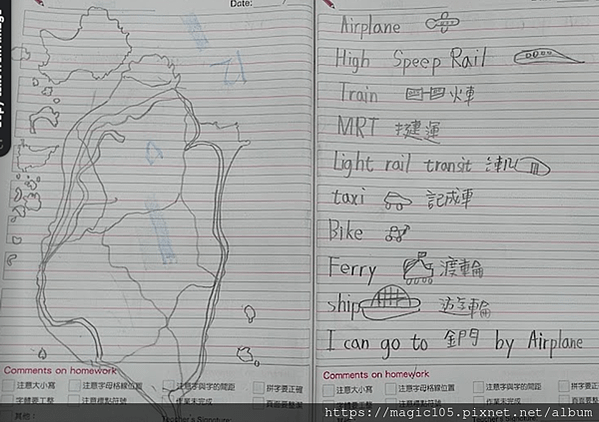 Date:
Airplane
High Speep Rail
Train 火車
MRT 捷運
Light rail transit
taxi 記成車
Bike
Ferry 渡輪
ship 遊輪
I can go to 金門 by Airplane
Comments on homework
注意大小寫 注意字母格線位置 注意字與字的間距 拼字要正確
字體要工整 注意標點符號 作業未完成 頁面要整潔
其他：
Teacher's Signature:
Comments on homework
注意大小寫 注意字母格線位置 注意字與字的間距
字體要工整 注意標點符號
https://magic105.pixnet.net/album